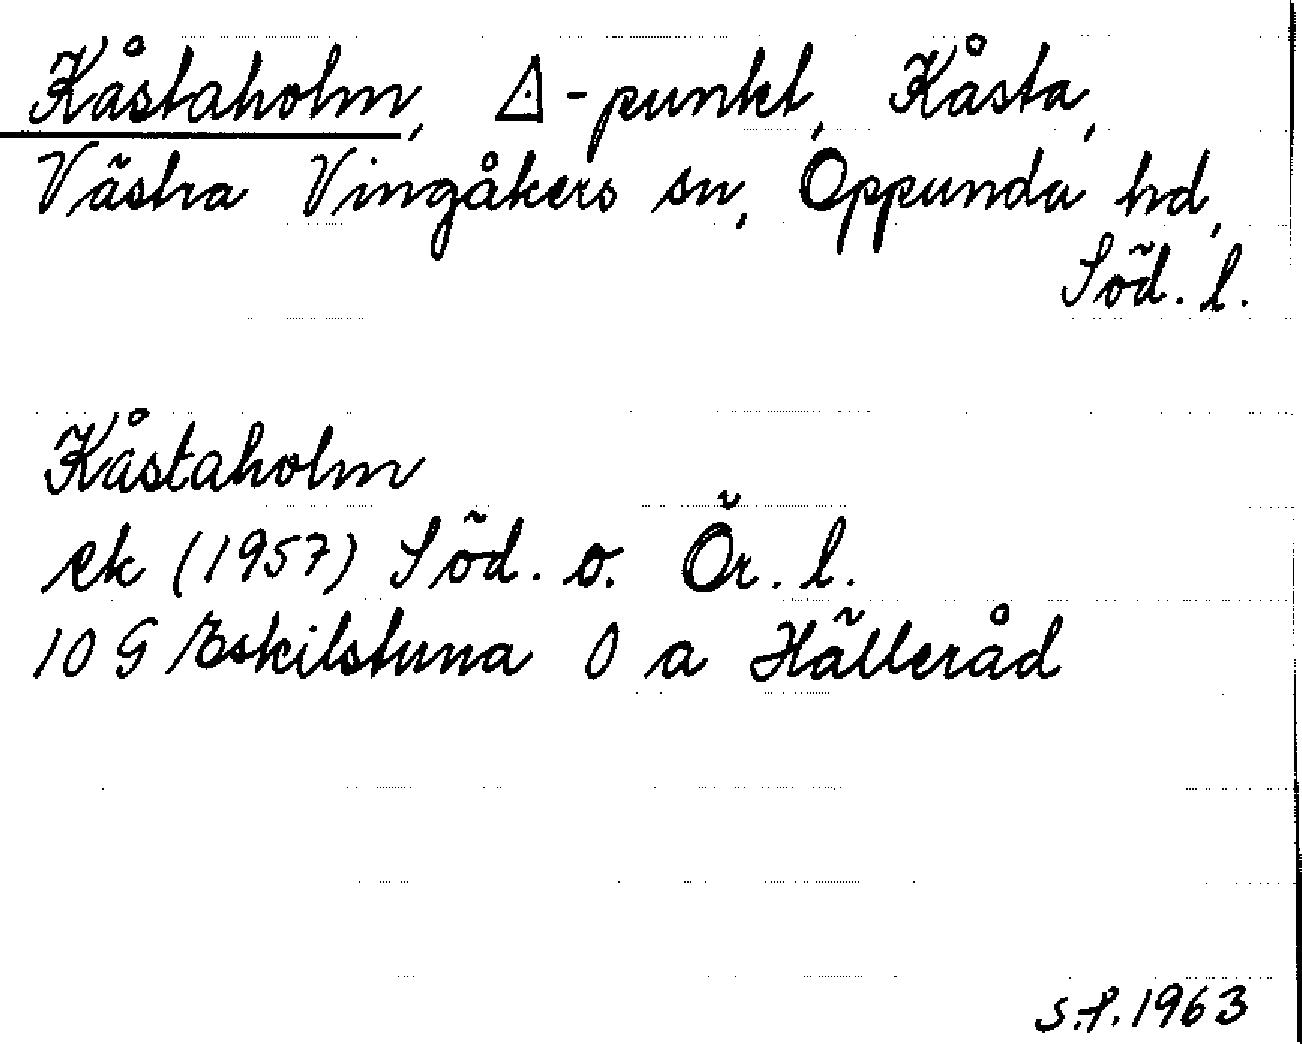 Kåstaholm, △-punkt, Kåsta,
Västra Vingåkers sn, Oppunda hd,
Söd. l.
Kåstaholm
ek (1957) Söd. o. Ör. l.
10 G Eskilstuna 0 a Hälleråd
S.f. 1963